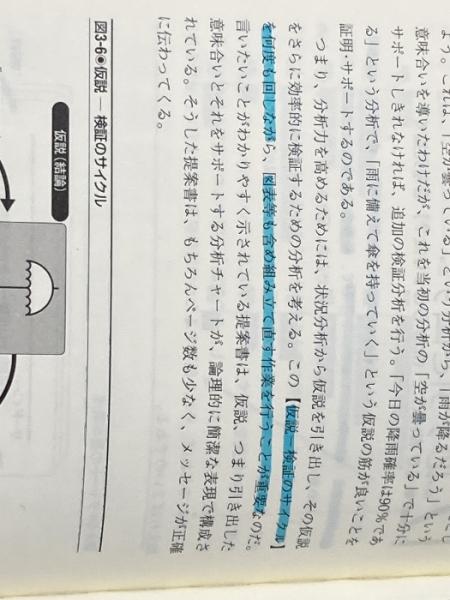 よう。これは、「空が曇っている」という分析から、「雨が降るだろう」という
意味合いを導いたわけだが、これを当初の分析の「空が曇っている」で十分に
サポートしきれなければ、追加の検証分析を行う。「今日の降雨確率は90%であ
る」という分析で、「雨に備えて傘を持っていく」という仮説の筋が良いことを
証明・サポートするのである。
つまり、分析力を高めるためには、状況分析から仮説を引き出し、その仮説
をさらに効率的に検証するための分析を考える。この【仮説―検証のサイクル】
を何度も回しながら、図表等も含め組み立て直す作業を行うことが重要なのだ。
言いたいことがわかりやすく示されている提案書は、仮説、つまり引き出した
意味合いとそれをサポートする分析チャートが、論理的に簡潔な表現で構成さ
れている。そうした提案書は、もちろんページ数も少なく、メッセージが正確
に伝わってくる。
図3-6◉仮説 ― 検証のサイクル
仮説(結論)